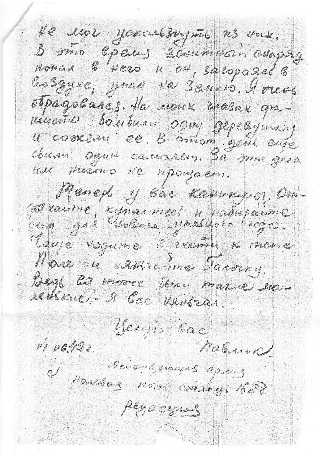 не мог ускользнуть из них.
В это время зенитный снаряд
попал в него и он, загораясь в
воздухе, упал на землю. Я очень
обрадовался. На моих глазах фа-
шисты бомбили одну деревушку
и сожгли ее. В этот день еще
сбили один самолет. За эти дела
им ничто не пройдет.
Теперь у вас каникулы, От-
дыхайте, купайтесь и набирайте
сил для нового учебного года.
Чаще ходите в гости к тете
Поле и
Ведь вы тоже были такие ма-
ленькие. Я вас нянчал.
Целую вас
Павлик
Действующая армия
полевая почт. станция
редакция